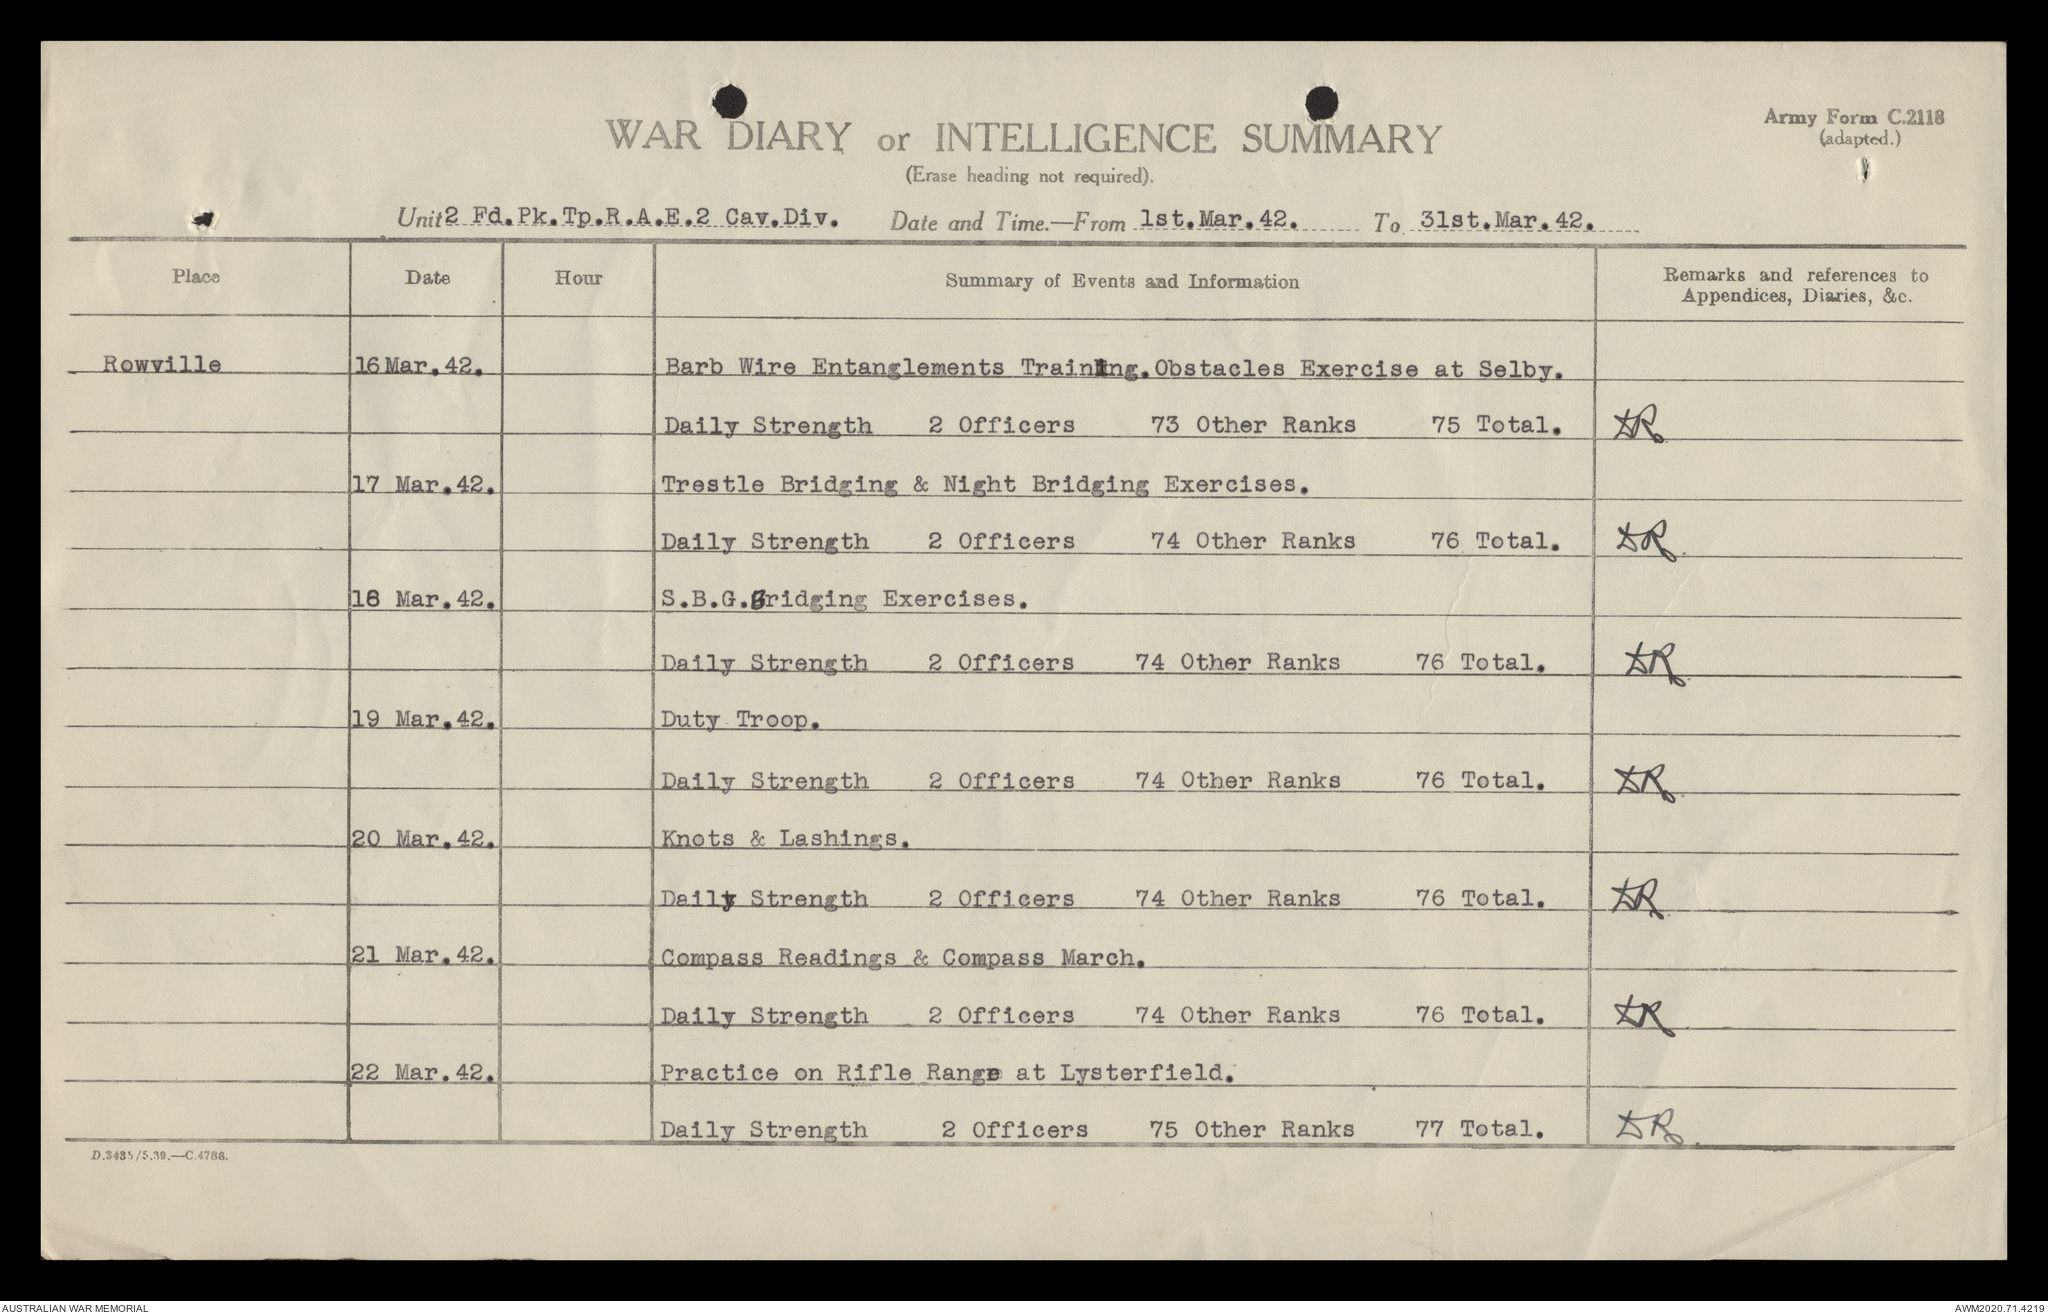 Army Form C.2118
(adapted.)
WAR DIARY or INTELLIGENCE SUMMARY
(Erase heading not required).
Unit 2 Fd.Pk.Tp.R.A.E.2 Cav.Div. Date and Time.—From 1st.Mar.42. To 31st.Mar.42.
Place Date Hour Summary of Events and Information Remarks and references to
Appendices, Diaries, &c.
Rowville 16 Mar.42. Barb Wire Entanglements Training.Obstacles Exercise at Selby.
Daily Strength 2 Officers 73 Other Ranks 75 Total. DR
17 Mar.42. Trestle Bridging & Night Bridging Exercises.
Daily Strength 2 Officers 74 Other Ranks 76 Total. DR
18 Mar.42. S.B.G.Bridging Exercises.
Daily Strength 2 Officers 74 Other Ranks 76 Total. DR
19 Mar.42. Duty Troop.
Daily Strength 2 Officers 74 Other Ranks 76 Total. DR
20 Mar.42. Knots & Lashings.
Daily Strength 2 Officers 74 Other Ranks 76 Total. DR
21 Mar.42. Compass Readings & Compass March.
Daily Strength 2 Officers 74 Other Ranks 76 Total. DR
22 Mar.42. Practice on Rifle Range at Lysterfield.
Daily Strength 2 Officers 75 Other Ranks 77 Total. DR
D.3435/5.39.—C.4786.
AUSTRALIAN WAR MEMORIAL AWM2020.71.4219